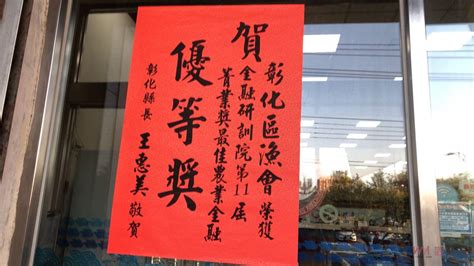 賀
彰化區漁會榮獲
金融研訓院第11屆
菁業獎最佳農業金融
優等獎
彰化縣長 王惠美 敬賀